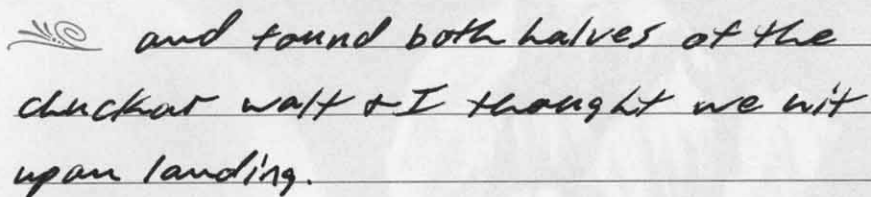 and found both halves of the
chuckar walt & I thought we hit
upon landing.